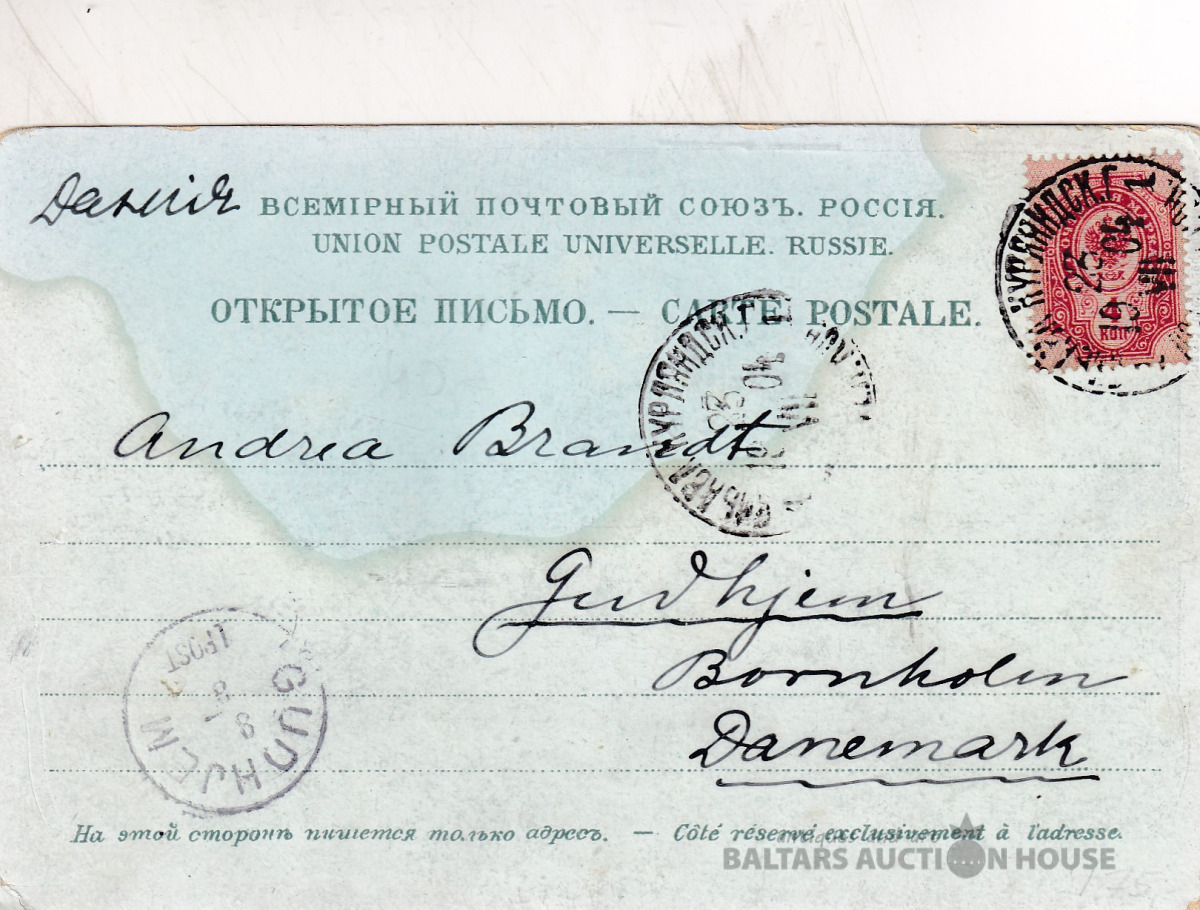 Данія
ВСЕМІРНЫЙ ПОЧТОВЫЙ СОЮЗЪ. РОССІЯ.
UNION POSTALE UNIVERSELLE. RUSSIE.
ОТКРЫТОЕ ПИСЬМО. — CARTE POSTALE.
КУРЛЯНДСК. Г.
23
VII 04
4
КОП
КУРЛЯНДСК. Г.
23
VII 04
Andrea Brandt
Gudhjem
Bornholm
Danemark
GUDHJEM
8 8
1POST
На этой сторонѣ пишется только адресъ. — Côté réservé exclusivement à l'adresse.
BALTARS AUCTION HOUSE